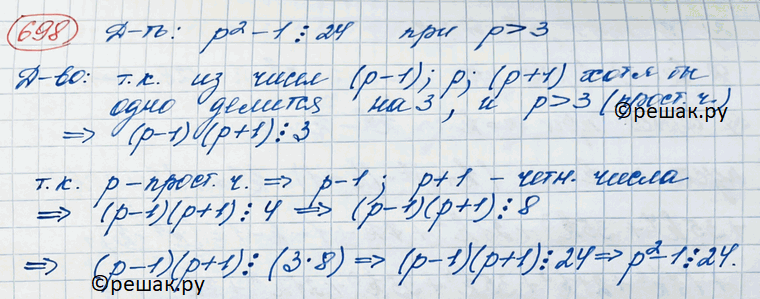 698 Д-ть: p² - 1 ⋮ 24 при p > 3
Д-во: т.к. из чисел (p-1); p; (p+1) хотя бы
одно делится на 3, и p > 3 (прост. ч.)
©решак.ру
⇒ (p-1)(p+1) ⋮ 3
т.к. p - прост. ч. ⇒ p-1; p+1 - четн. числа
⇒ (p-1)(p+1) ⋮ 4 ⇒ (p-1)(p+1) ⋮ 8
⇒ (p-1)(p+1) ⋮ (3·8) ⇒ (p-1)(p+1) ⋮ 24 ⇒ p²-1 ⋮ 24.
©решак.ру